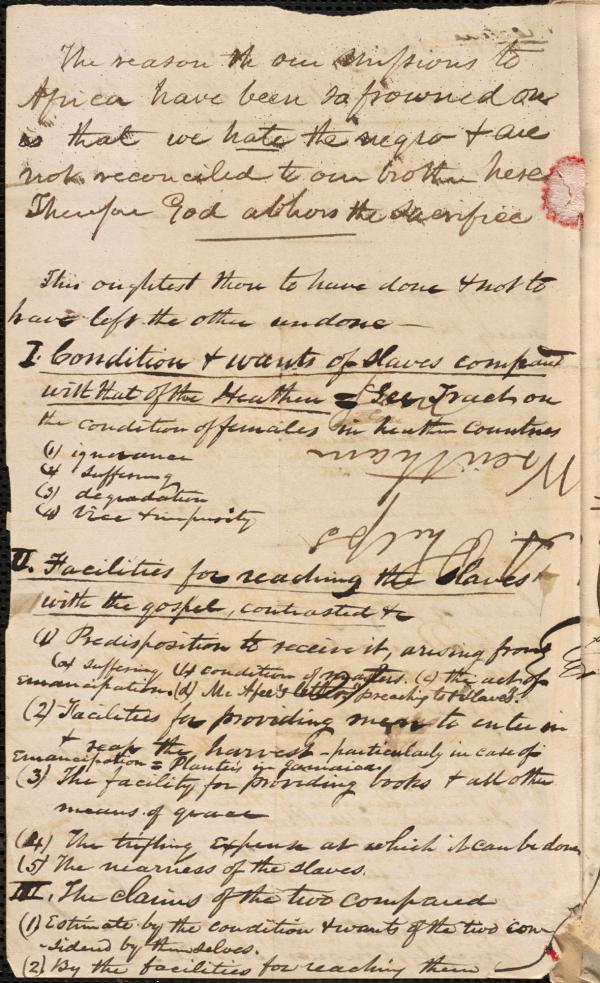 The reason th our missions to
Africa have been so frowned on
is that we hate the negro & are
not reconciled to our brother here
Therefore God abhors the sacrifice
This oughtest thou to have done & not to
have left the other undone —
I. Condition & wants of slaves compared
with that of the Heathen = See Tract on
the condition of females in heathen countries
(1) ignorance
(2) suffering
(3) degradation
(4) vice & impurity
Wrentham
A. Phelps
II. Facilities for reaching the slaves
with the gospel, contrasted &c
(1) Predisposition to receive it, arising from
(a) suffering (b) condition of masters. (c) the act of
Emancipation. (d) Mc Afee's preaching to slaves.
(2) Facilities for providing men to enter in
& reap the harvest – particularly in case of
Emancipation = Planters in Jamaica
(3) The facility for providing books & all other
means of grace
(4) The trifling expense at which it can be done
(5) The nearness of the slaves.
III. The claims of the two compared
(1) Estimate by the condition & wants of the two con-
-sidered by themselves.
(2) By the facilities for reaching them